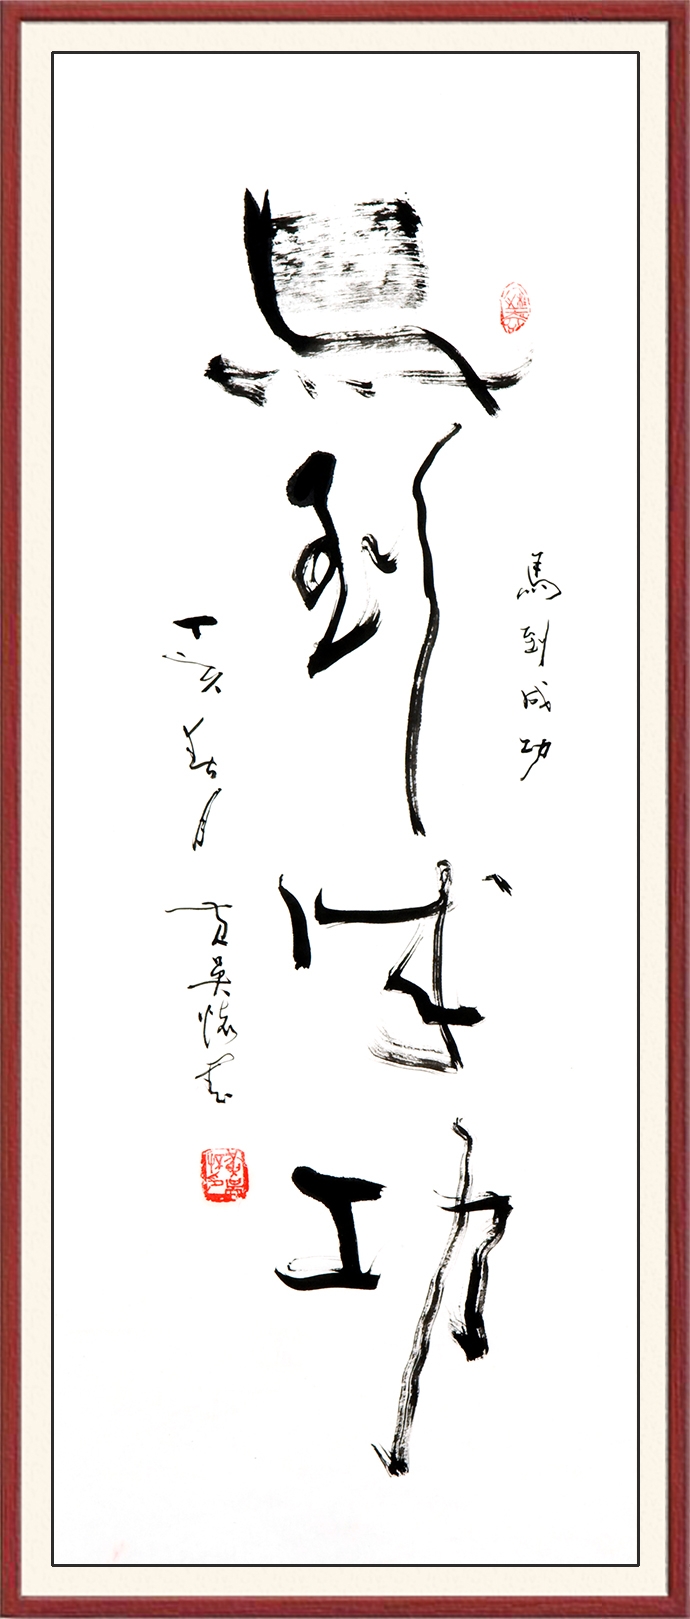 馬到成功
馬到成功
丁亥春月 吴懷書